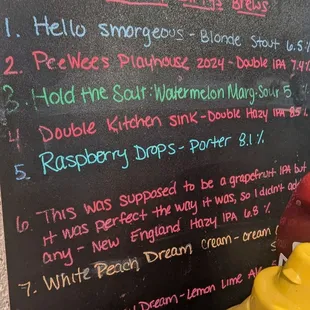 Brews
1. Hello smorgeous - Blonde Stout 6.5%
2. PeeWee's Playhouse 2024 - Double IPA 7.4%
3. Hold the Salt: Watermelon Marg-Sour 5
4 Double Kitchen sink - Double Hazy IPA 8.5%
5 Raspberry Drops - Porter 8.1%
6. This was supposed to be a grapefruit IPA but
it was perfect the way it was, so I didn't add
any - New England Hazy IPA 6.8%
7. White Peach Dream cream - cream
Dream - Lemon Lime